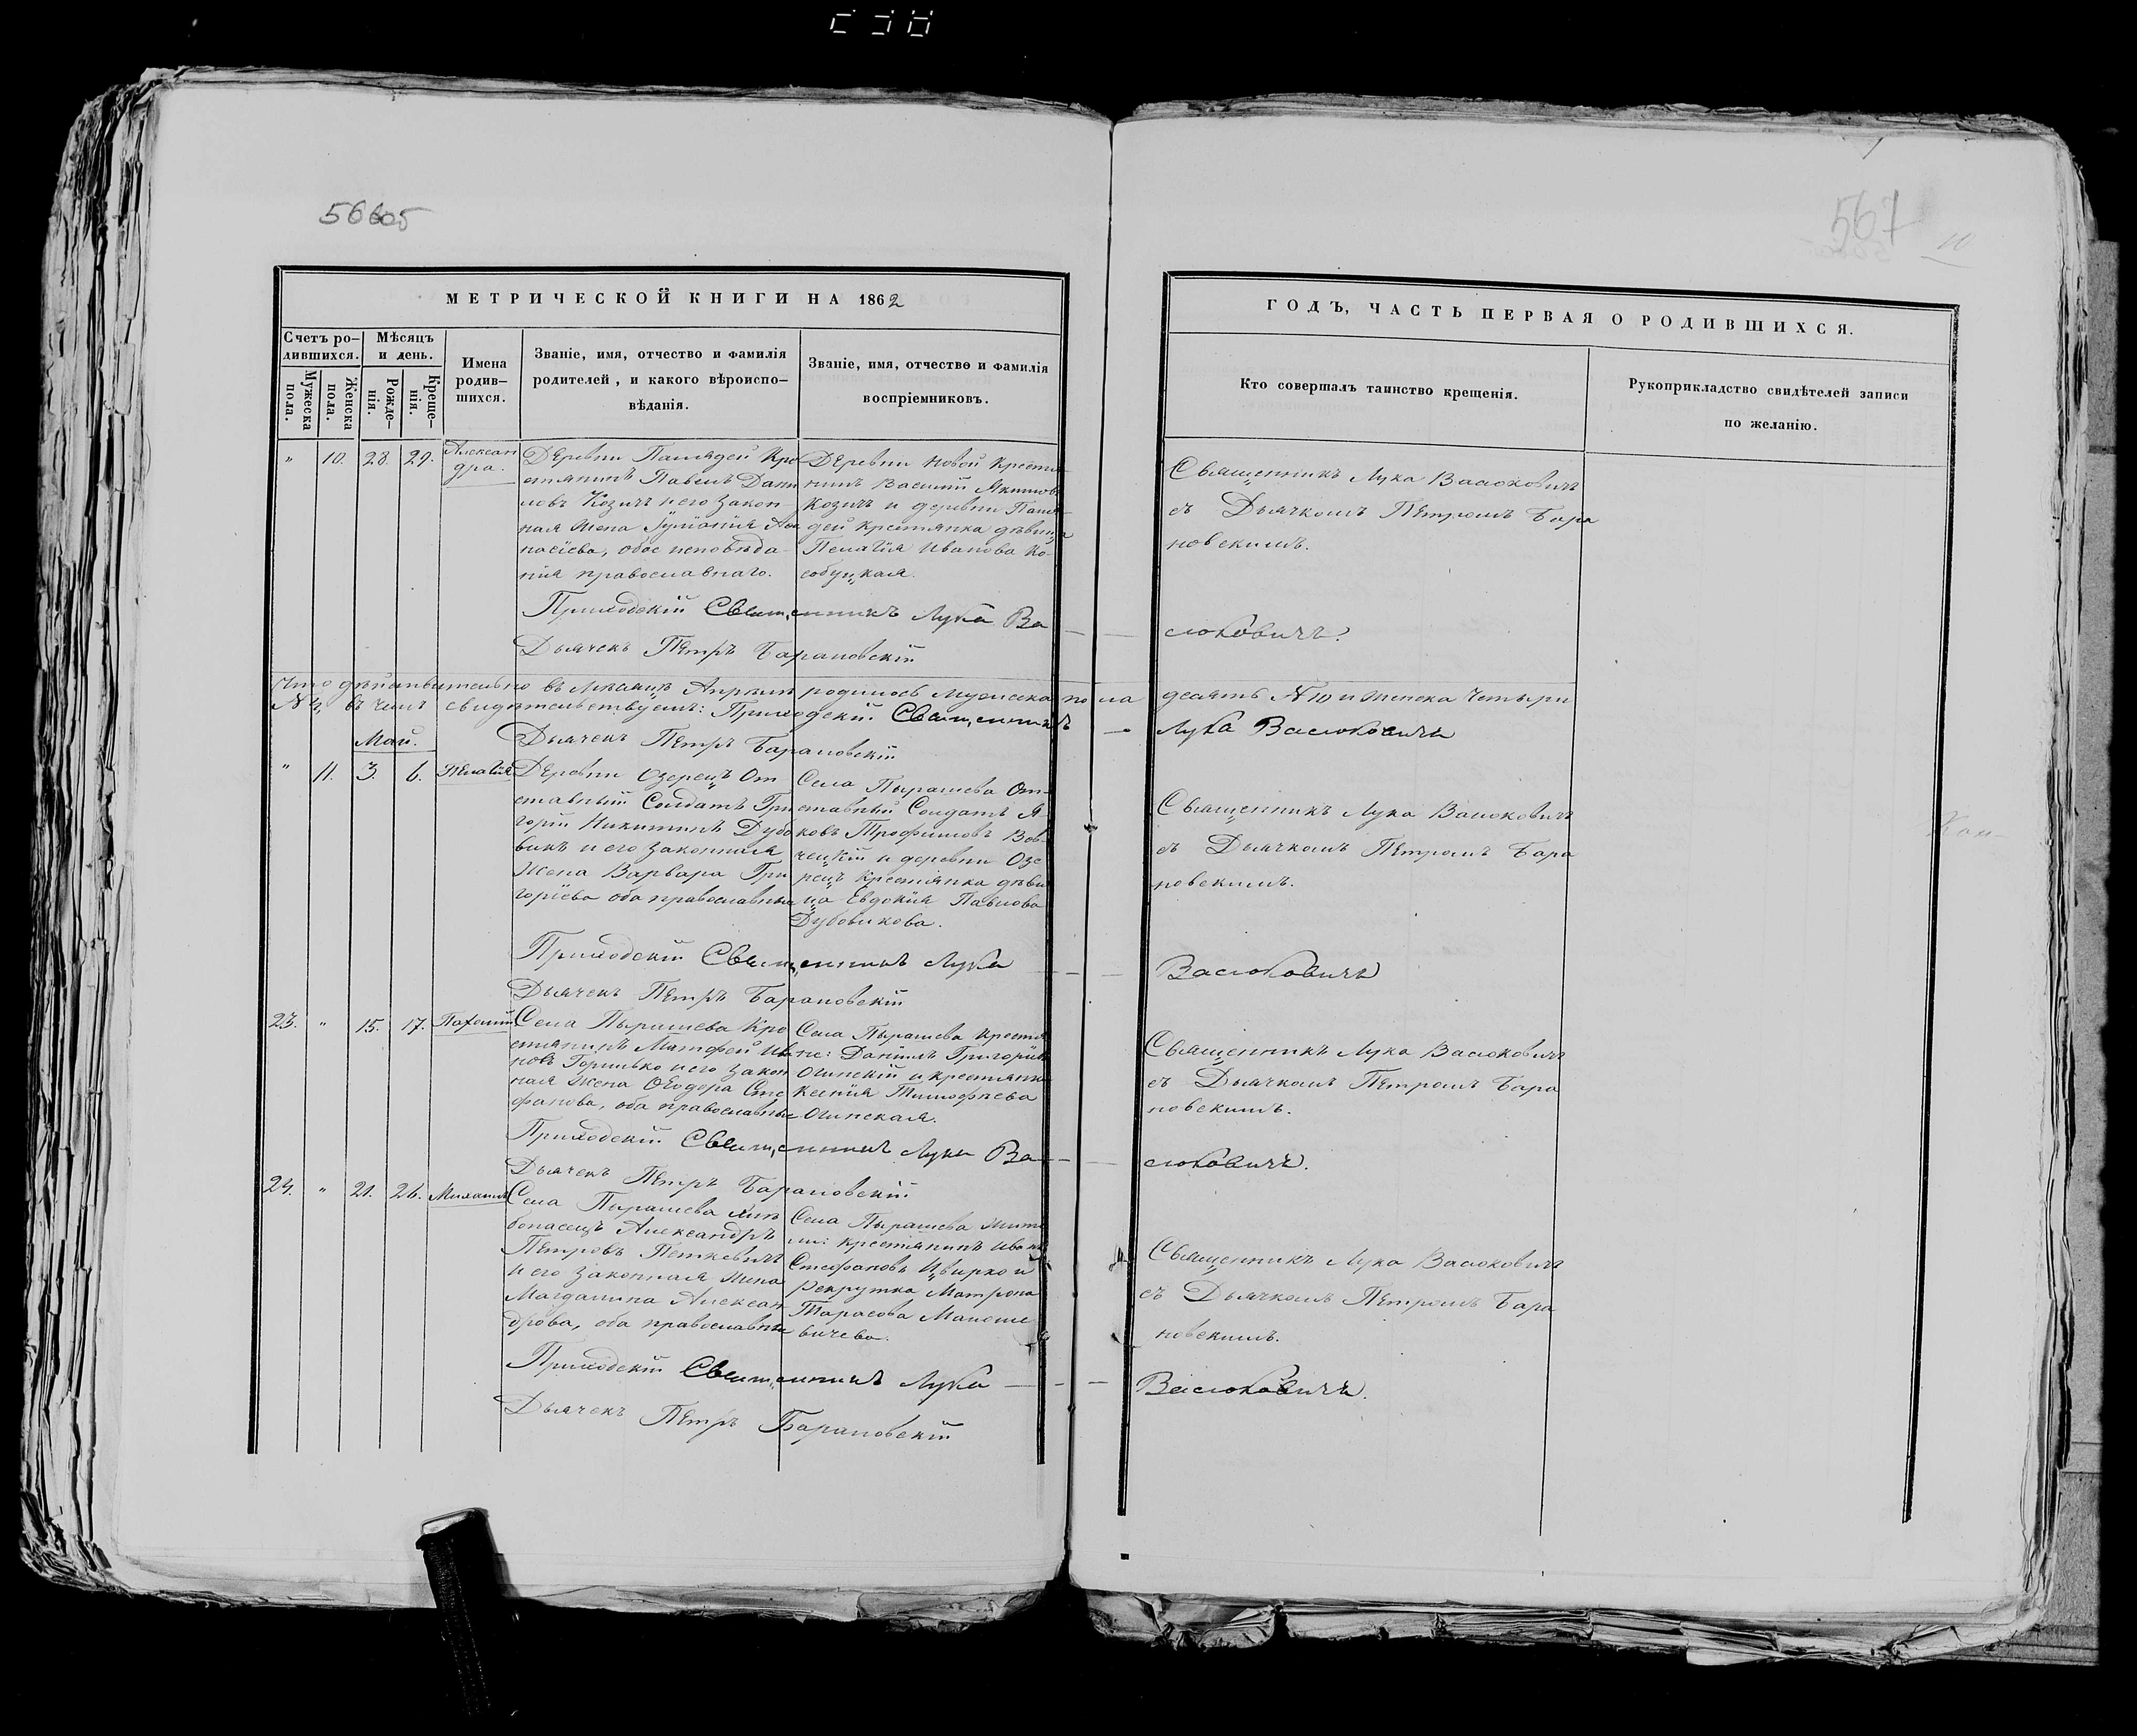 566
567
10
МЕТРИЧЕСКОЙ КНИГИ НА 1862
Счетъ ро-
дившихся.
Мѣсяцъ
и день.
Мужеска
пола.
Женска
пола.
Рожде-
нія.
Креще-
нія.
Имена
родив-
шихся.
Званіе, имя, отчество и фамилія
родителей, и какого вѣроиспо-
вѣданія.
Званіе, имя, отчество и фамилія
воспріемниковъ.
ГОДЪ, ЧАСТЬ ПЕРВАЯ О РОДИВШИХСЯ.
Кто совершалъ таинство крещенія.
Рукоприкладство свидѣтелей записи
по желанію.
" 10. 28. 29.
Алексан
дра.
Деревни Крe
стянинъ Павелъ Дани
ловъ Козичъ и его закон
ная жена
обое исповѣда
нія православнаго.
Деревни Новой Крестя
нинъ Василій Якимовъ
Козичъ и деревни
крестянка дѣвица
Пелагія Иванова Ко
собуцкая.
Священникъ Лука Васюковичъ
съ Дьячкомъ Петромъ Бара
новскимъ.
Приходскій Священникъ Лука Ва — — сюковичъ.
Дьячекъ Петръ Барановскій
Что дѣйствительно въ мѣсяцѣ Апрѣлѣ родилось мужеска пола десять №10 и женска четыри
№ 4, въ чемъ свидѣтельствуемъ: Приходскій Священникъ — Лука Васюковичъ
Дьячекъ Петръ Барановскій
Май.
" 11. 3. 6. Пелагія
Деревни Озерецъ От
ставный Солдатъ Гри
горій Никитинъ Дубо
викъ и его законная
жена Варвара Гри
горіева оба православные
Села Пырашева От-
ставный Солдатъ Я
ковъ Трофимовъ
и деревни Озе
рецъ крестянка дѣви
ца Евдокія Павлова
Дубовикова.
Священникъ Лука Васюковичъ
съ Дьячкомъ Петромъ Бара
новскимъ.
Приходскій Священникъ Лука — — Васюковичъ
Дьячекъ Петръ Барановскій
23. " 15. 17. Пахомій
Села Пырашева Кре
стянинъ Матфей Ива
новъ и его закон
ная жена Ѳеодора Сте
фанова, оба православные
Села Пырашева Крестя
не: Даніилъ Григоріевъ
Огинскій и крестянка
Ксенія Тимофеева
Огинская.
Священникъ Лука Васюковичъ
съ Дьячкомъ Петромъ Бара
новскимъ.
Приходскій Священникъ Лука Ва — — сюковичъ.
Дьячекъ Петръ Барановскій
24. " 21. 26. Михаилъ
Села Пырашева
Александръ
Петровъ Петкевичъ
и его законная жена
Магдалина Алексан
дрова, оба православные
Села Пырашева жите
ли: крестянинъ Иванъ
Стефановъ Цвирко и
рекрутка Матрона
Тарасова Маноше
вичева.
Священникъ Лука Васюковичъ
съ Дьячкомъ Петромъ Бара
новскимъ.
Приходскій Священникъ Лука — — — Васюковичъ.
Дьячекъ Петръ Барановскій